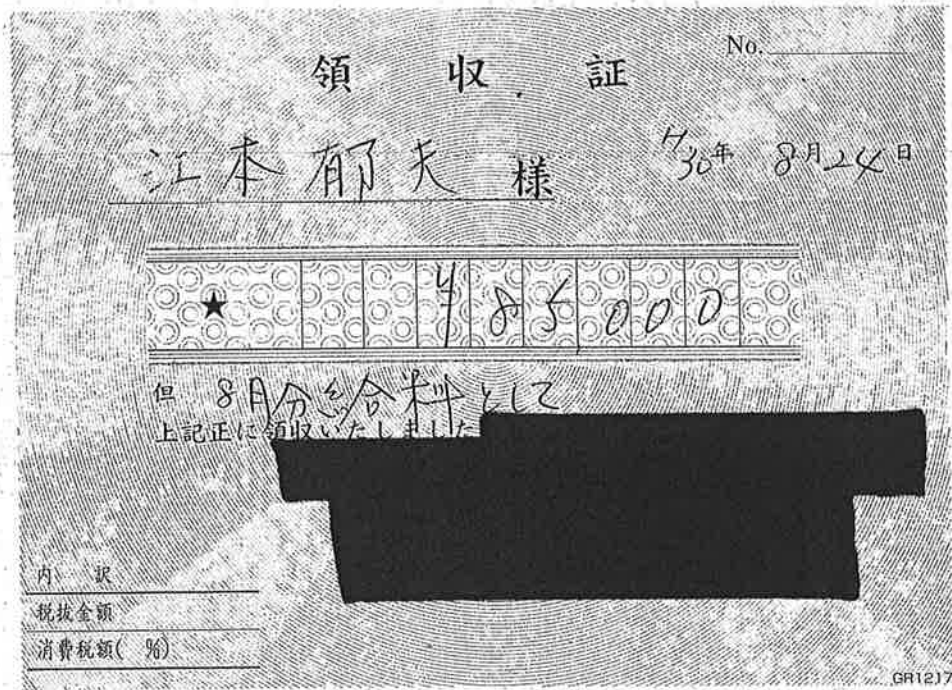 No.
領収証
江本郁夫 様
H30年 8月24日
★ ¥85000
但 8月分給料として
上記正に領収いたしました
内訳
税抜金額
消費税額( %)